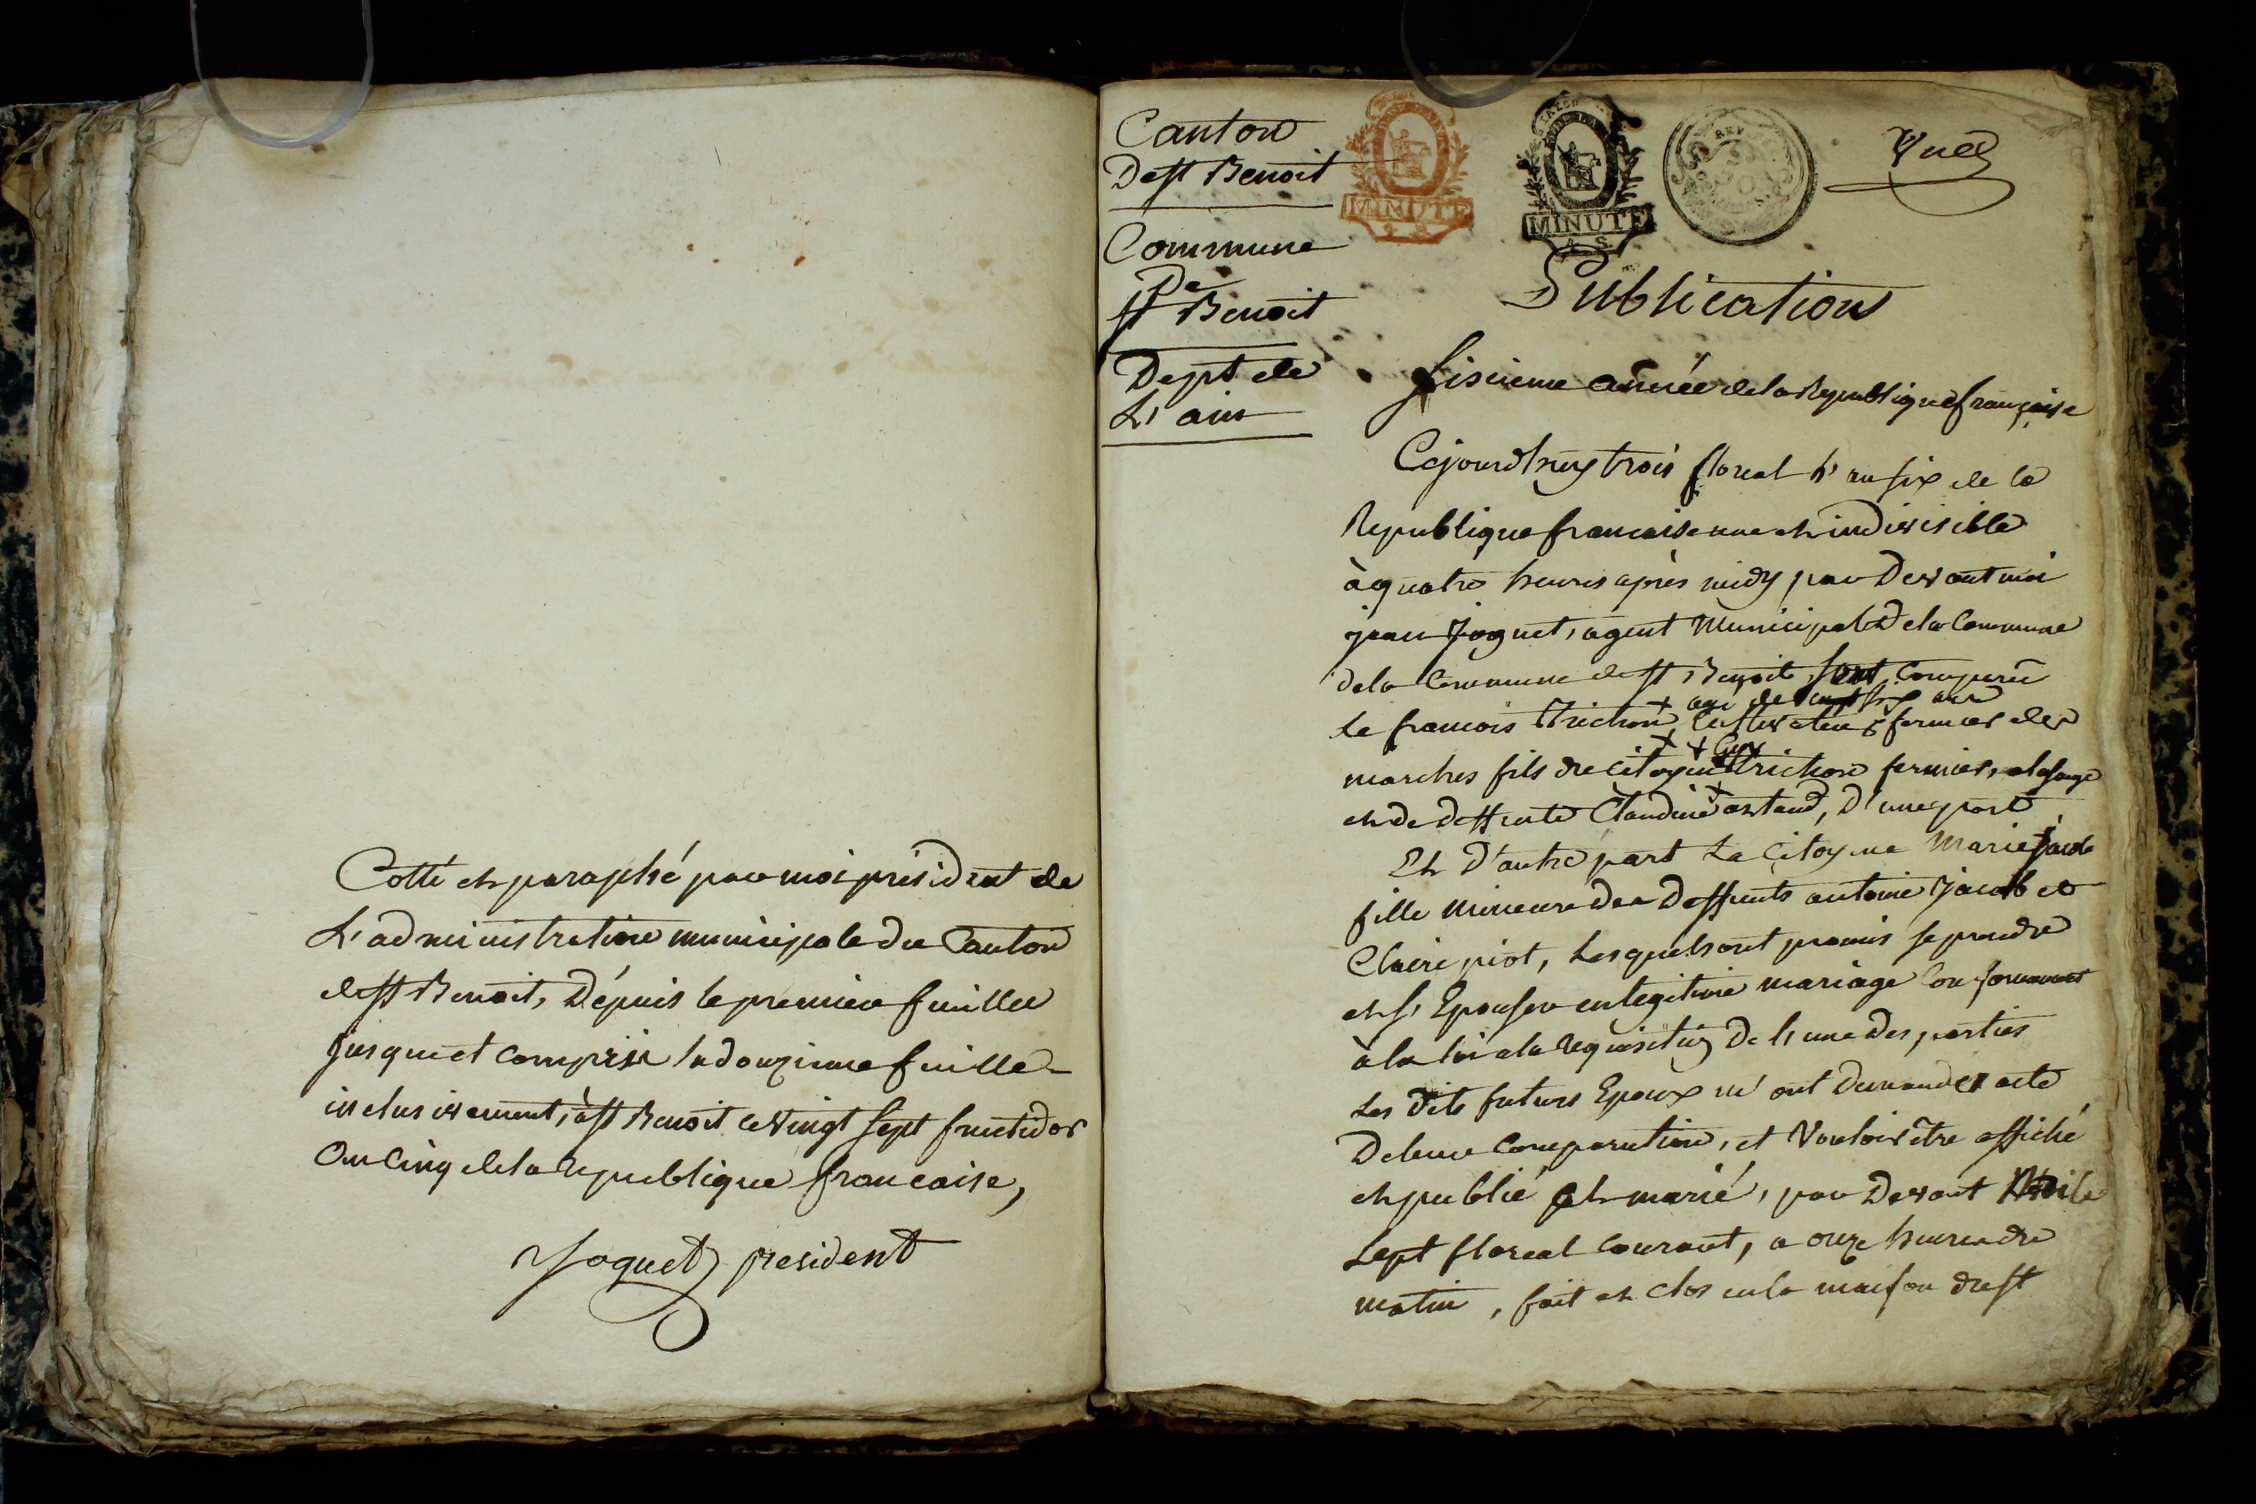 Cotté et paraphé par moi président de
L'administration municipale du Canton
de st Benoit, Dépuis le premier feuillet
jusque et compris la douzieme feuille
inclusivement, à st Benoit ce vingt sept fructidor
an Cinq de la republique francaise,
Joguet president
Canton
De st Benoit
Commune
De
st Benoit
Dept de
L'ain
MINUTE
MINUTE
Publication
sisieme année de la Republique française
Cejourdhuy trois floreal L'an six de la
Republique francaise une et indivisible
à quatre heures après midy par Devant moi
jean Joguet, agent Municipal De la Commune
de la Commune de st Benoit, sont comparu
+ agé de vingt six ans
le francois Trichon cultivateur fermier des
+ + Guy
marches fils du citoyen trichon fermier,
et de deffunte Claudine, D'une part
Et D'autre part La Citoyene Marie Jacob
fille mineure des Deffunts antoine Jacob et
Claire piot, Lesquels ont promis se prendre
et s'Epouser en legitime mariage conformement
à la loi a la requisition De l'une des parties
Les dits futurs Epoux m'ont demander acte
De leur comparution, et Vouloir être affiché
et publié et marié, par Devant Moi le
sept floreal courant, a onze heures du
matin, fait et clos en la maison de st